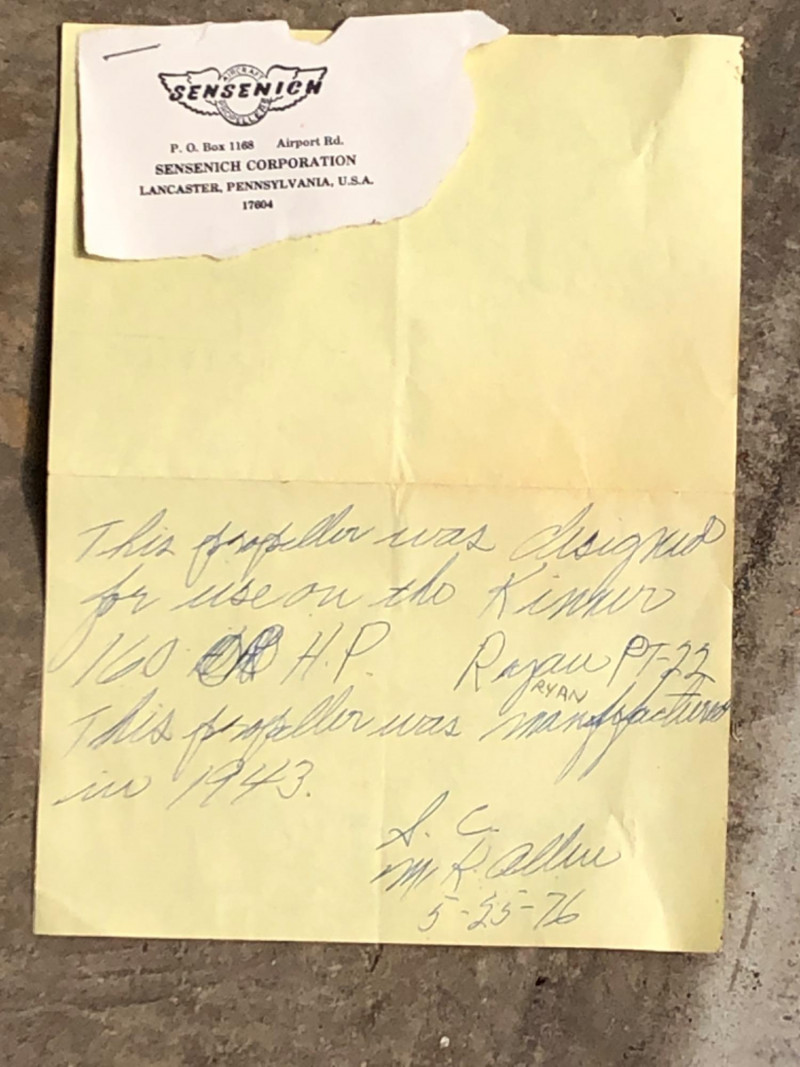 AIRCRAFT
SENSENICH
PROPELLERS
P. O. Box 1168 Airport Rd.
SENSENICH CORPORATION
LANCASTER, PENNSYLVANIA, U.S.A.
17604
This propeller was designed
for use on the Kinner
160 H.P. Ryan PT-22
RYAN
This propeller was manufactured
in 1943.
S. C.
M R Allen
5-25-76